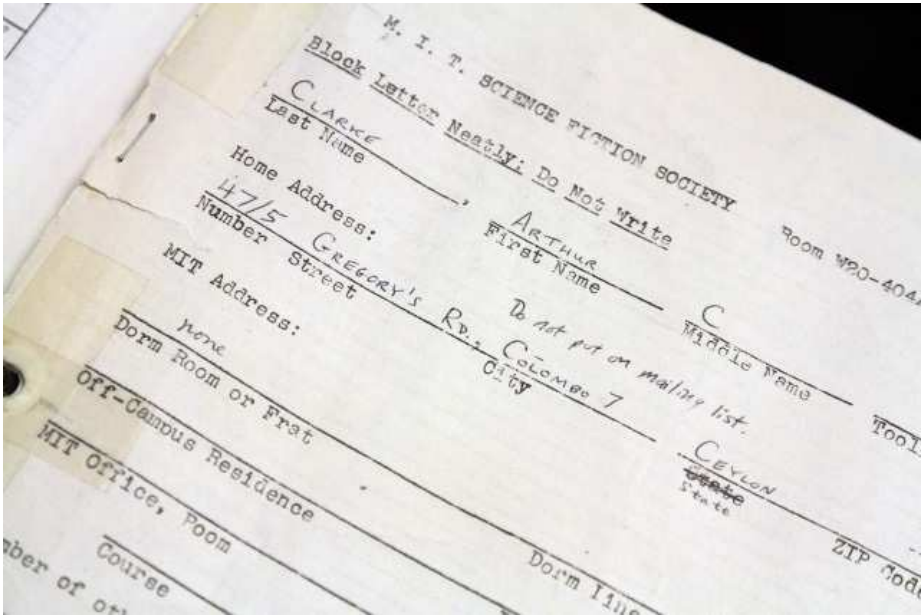 M. I. T. SCIENCE FICTION SOCIETY
Room W20-404
Block Letter Neatly; Do Not Write
CLARKE ARTHUR C
Last Name , First Name Middle Name Tool
Home Address:
Do not put on mailing list.
47/5 GREGORY'S RD., COLOMBO 7 CEYLON
Number Street City State
State
ZIP Code
MIT Address:
none
Dorm Room or Frat Dorm Line
Off-Campus Residence
MIT Office, Room
Course